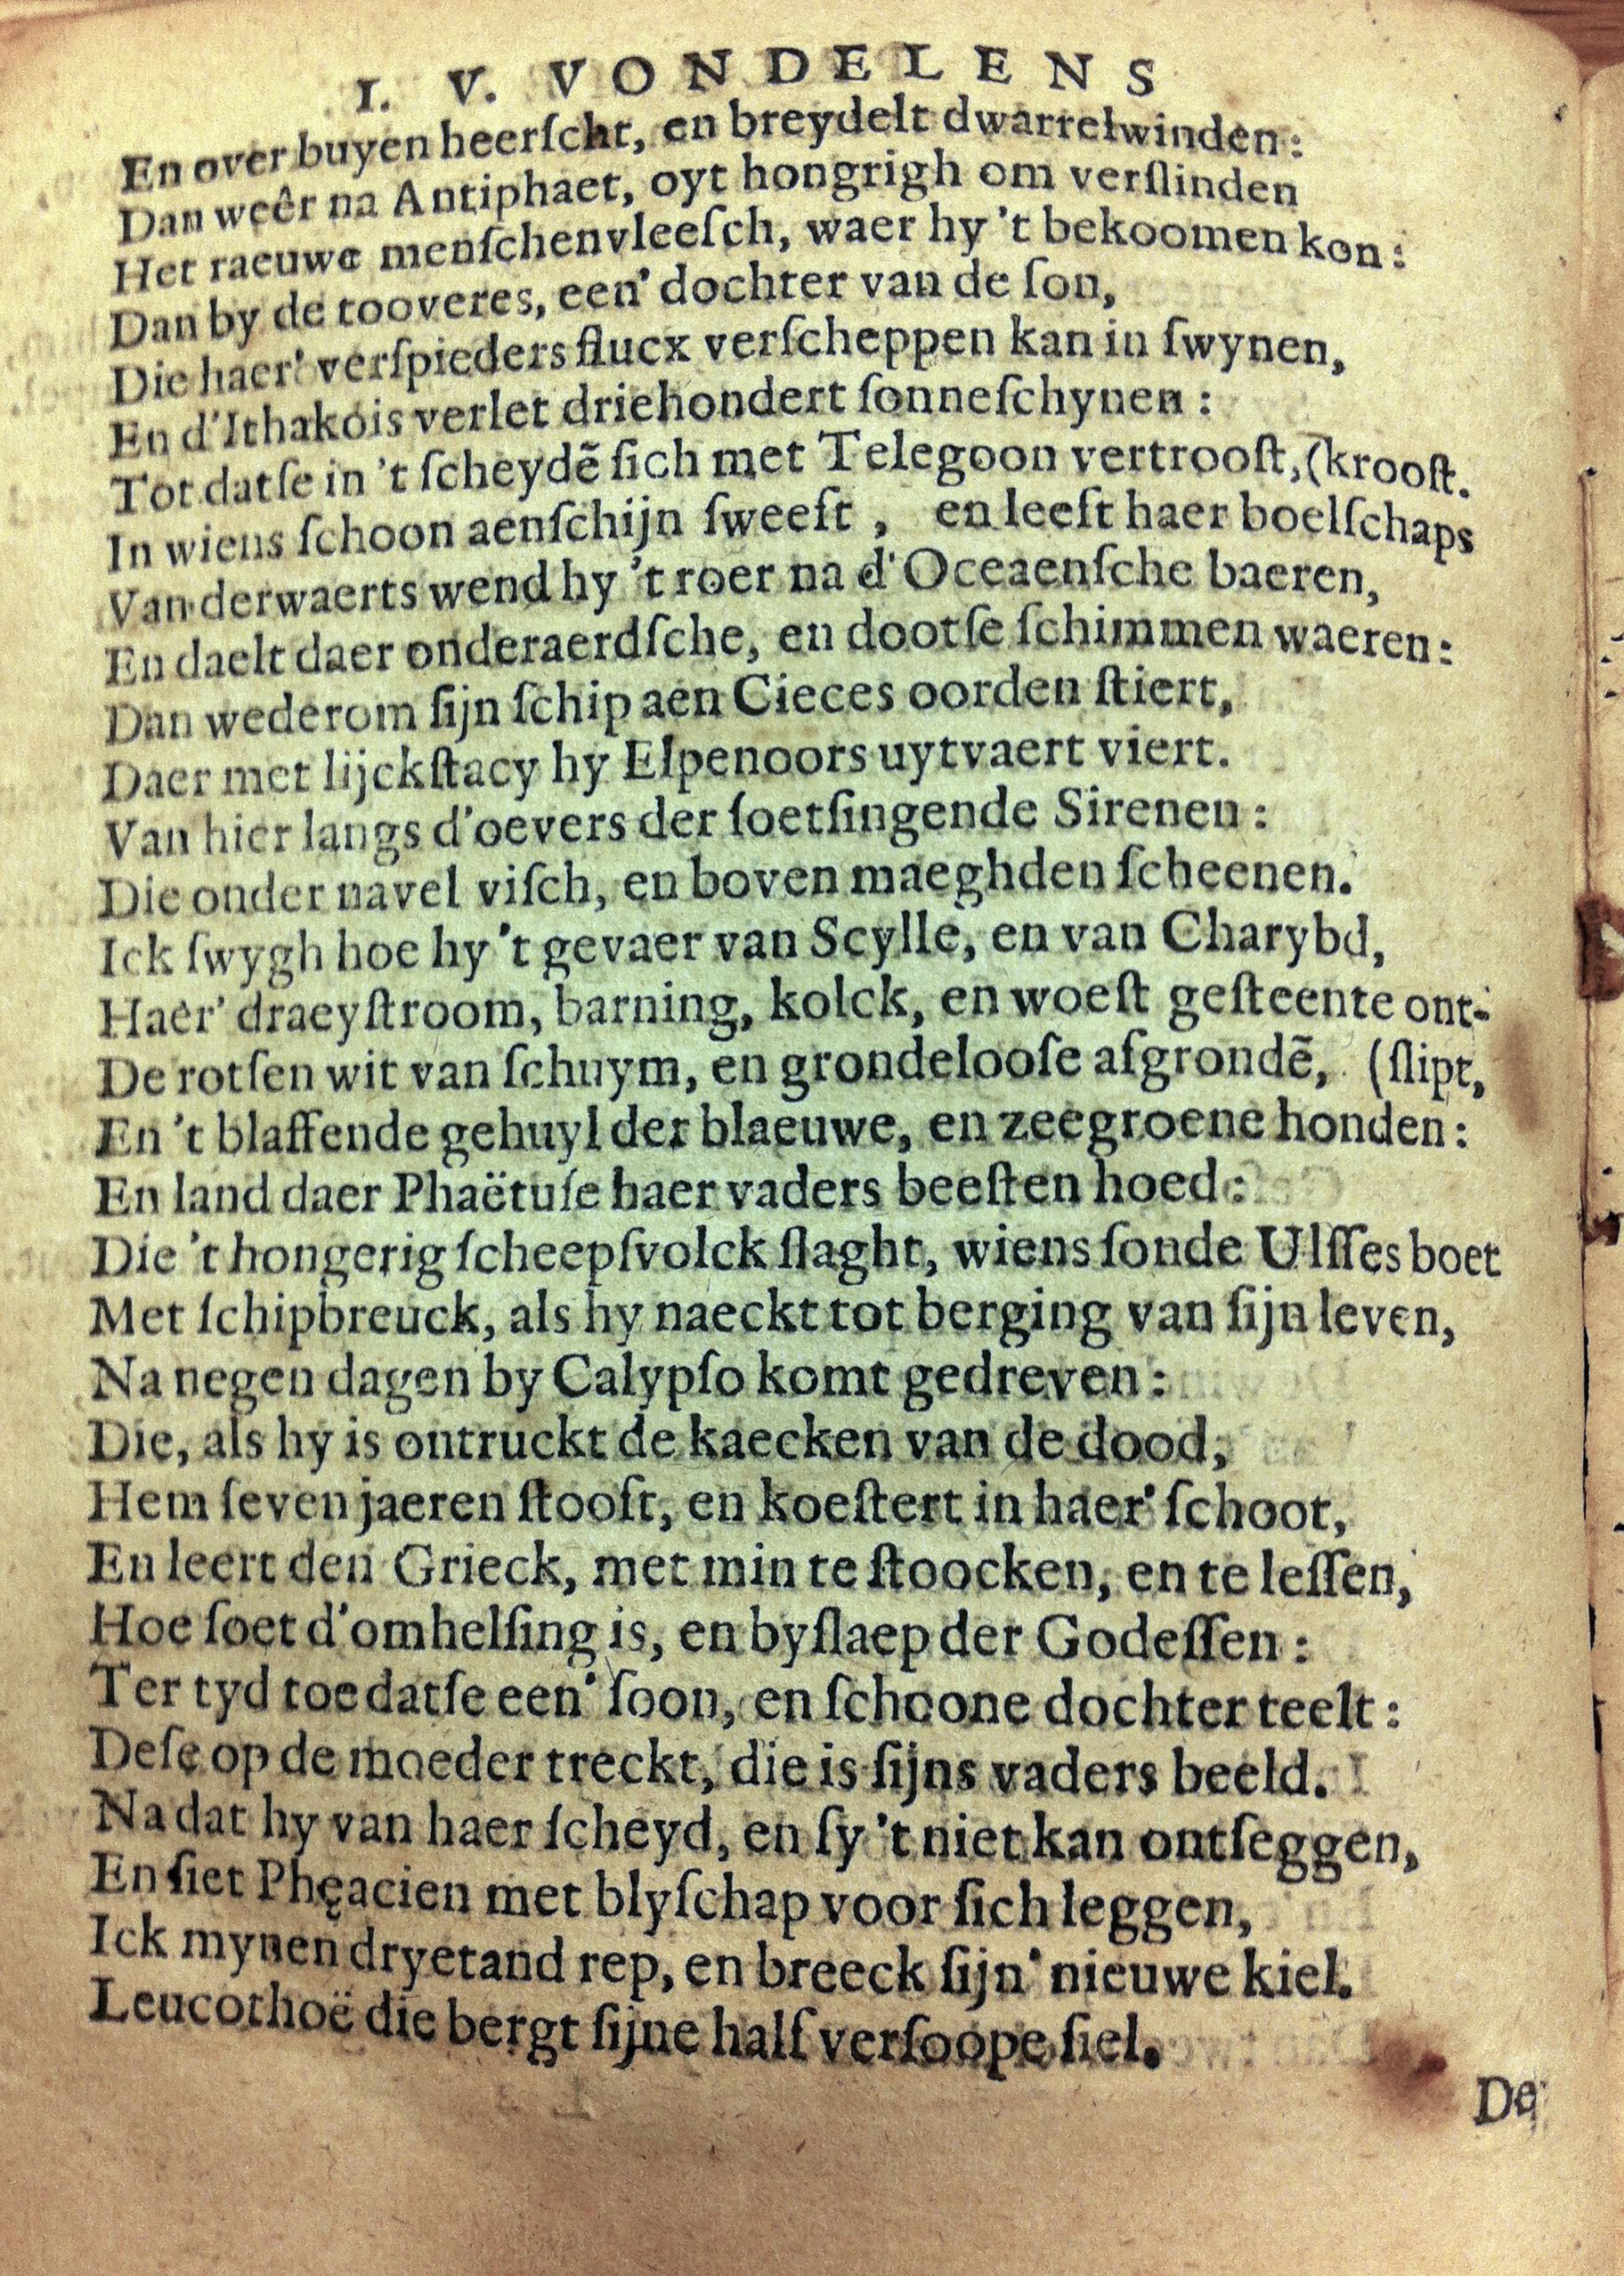 I. V. VONDELENS
En over buyen heerſcht, en breydelt dwarrelwinden:
Dan weêr na Antiphaet, oyt hongrigh om verſlinden
Het raeuwe menſchenvleeſch, waer hy 't bekoomen kon:
Dan by de tooveres, een' dochter van de ſon,
Die haer' verſpieders flucx verſcheppen kan in ſwynen,
En d'Ithakois verlet driehondert ſonneſchynen:
Tot datſe in 't ſcheydẽ ſich met Telegoon vertrooſt, (krooſt.
In wiens ſchoon aenſchijn ſweeft, en leeft haer boelſchaps
Van derwaerts wend hy 't roer na d'Oceaenſche baeren,
En daelt daer onderaerdſche, en dootſe ſchimmen waeren:
Dan wederom ſijn ſchip aen Cieces oorden ſtiert,
Daer met lijckſtacy hy Elpenoors uytvaert viert.
Van hier langs d'oevers der ſoetſingende Sirenen:
Die onder navel viſch, en boven maeghden ſcheenen.
Ick ſwygh hoe hy 't gevaer van Scylle, en van Charybd,
Haer' draeyſtroom, barning, kolck, en woeſt geſteente ont-
De rotſen wit van ſchuym, en grondelooſe afgrondẽ, (ſlipt,
En 't blaffende gehuyl der blaeuwe, en zeegroene honden:
En land daer Phaëtuſe haer vaders beeſten hoed:
Die 't hongerig ſcheepſvolck ſlaght, wiens ſonde Ulſſes boet
Met ſchipbreuck, als hy naeckt tot berging van ſijn leven,
Na negen dagen by Calypſo komt gedreven:
Die, als hy is ontruckt de kaecken van de dood,
Hem ſeven jaeren ſtooft, en koeſtert in haer' ſchoot,
En leert den Grieck, met min te ſtoocken, en te leſſen,
Hoe ſoet d'omhelſing is, en byſlaep der Godeſſen:
Ter tyd toe datſe een' ſoon, en ſchoone dochter teelt:
Deſe op de moeder treckt, die is ſijns vaders beeld.
Na dat hy van haer ſcheyd, en ſy 't niet kan ontſeggen,
En ſiet Phęacien met blyſchap voor ſich leggen,
Ick mynen dryetand rep, en breeck ſijn' nieuwe kiel.
Leucothoë die bergt ſijne half verſoope ſiel.
De